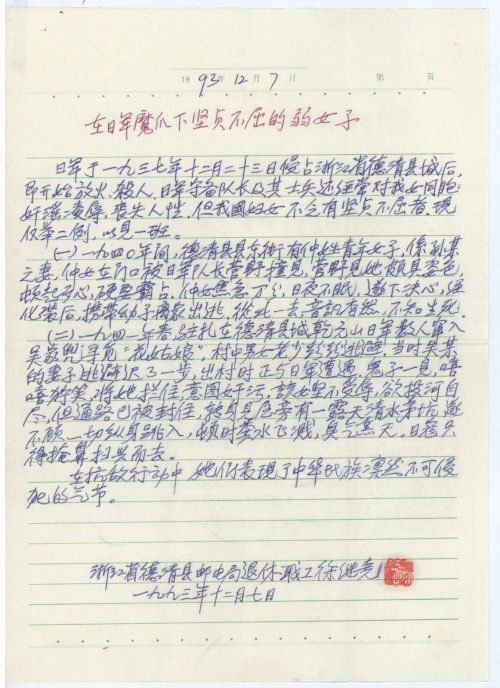 1993年12月7日 第 页
在日军魔爪下坚贞不屈的弱女子
日军于一九三七年十二月二十三日侵占浙江省德清县城后,
即开始放火、殺人,日军守备队长及其士兵还经常对我女同胞
奸淫凌辱,丧失人性,但我國妇女不乏有坚贞不屈者,现
仅举二例,以見一班。
(一)一九四〇年间,德清县县东街有仲姓青年女子,係孙某
之妻,仲女在门口被日军队长菅野撞見,菅野見她頗具姿色,
顿起歹心,硬要霸占,仲女焦急万分,日夜不眠,遂下决心,经
化装后,携带幼子离家出逃,从此一去音訊杳然,不知生死。
(二)一九四一年春,驻扎在德清县城乾元山日军数人窜入
吴家兜寻覓“花姑娘”,村中男女老少纷纷逃避,当时吴某
的妻子逃避迟了一步,出村时正与日军遭遇,鬼子一見,嘻
嘻奸笑,将她拦住,意图奸污,該女寧不受辱,欲投河自
尽,但通路已被封住,转身見屋旁有一露天清水茅坑,遂
不顾一切纵身跳入,顿时粪水飞溅,臭气熏天。日寇只
得掩鼻扫兴而去。
在抗敌行动中,她们表現了中华民族凛然不可侵
犯的气节。
浙江省德清县邮电局退休职工徐继尧
一九九三年十二月七日